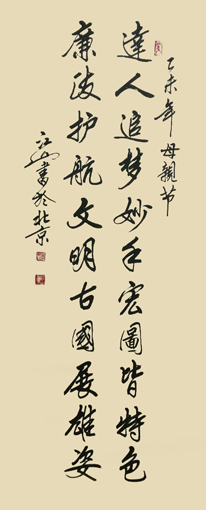 乙未年母親节
達人追梦妙手宏圖皆特色
廉政护航文明古國展雄姿
江山書於北京